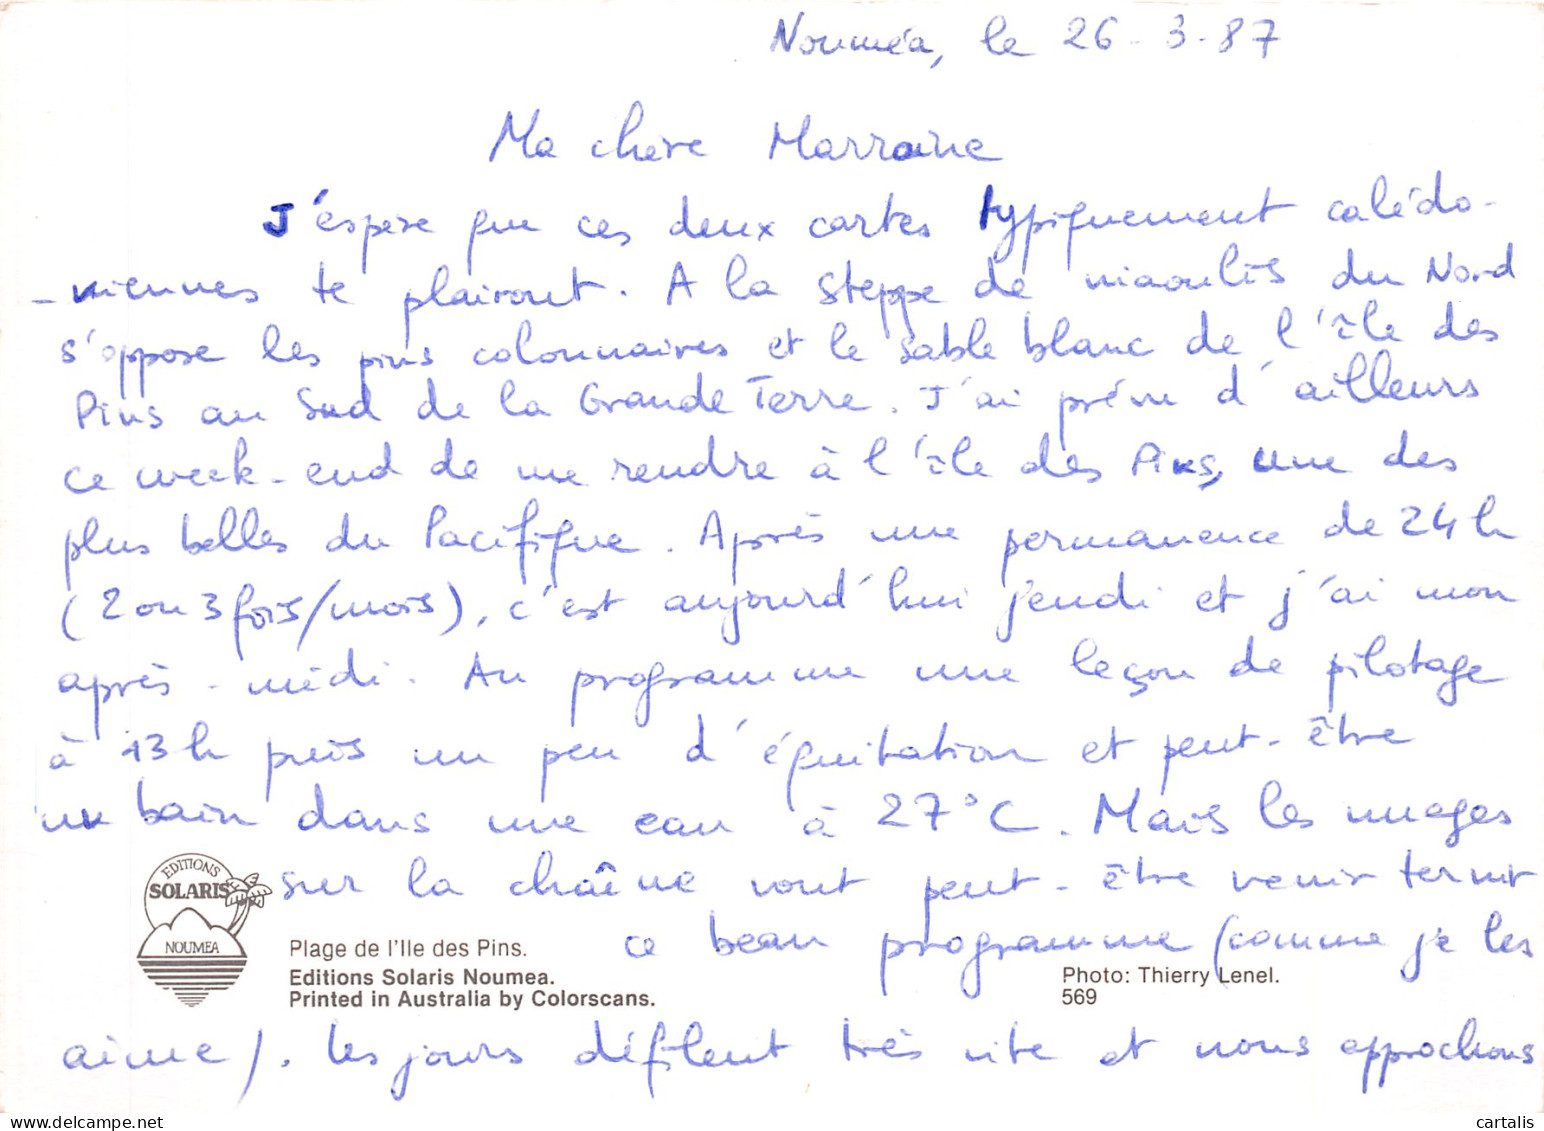 Nouméa, le 26-3-87
Ma chère Marraine
J'espère que ces deux cartes typiquement calédo-
-niennes te plairont. A la steppe de niaoulis du Nord
s'oppose les pins colonnaires et le sable blanc de l'île des
Pins au Sud de la Grande Terre. J'ai prévu d'ailleurs
ce week-end de me rendre à l'île des Pins, une des
plus belles du Pacifique. Après une permanence de 24h
(2 ou 3 fois/mois), c'est aujourd'hui jeudi et j'ai mon
après-midi. Au programme une leçon de pilotage
à 13h puis un peu d'équitation et peut-être
un bain dans une eau à 27°C. Mais les nuages
sur la chaîne vont peut-être venir ternir
ce beau programme (comme je les
aime). Les jours défilent très vite et nous approchons
EDITIONS
SOLARIS
NOUMEA
Plage de l'Ile des Pins.
Editions Solaris Noumea.
Printed in Australia by Colorscans.
Photo: Thierry Lenel.
569
cartalis